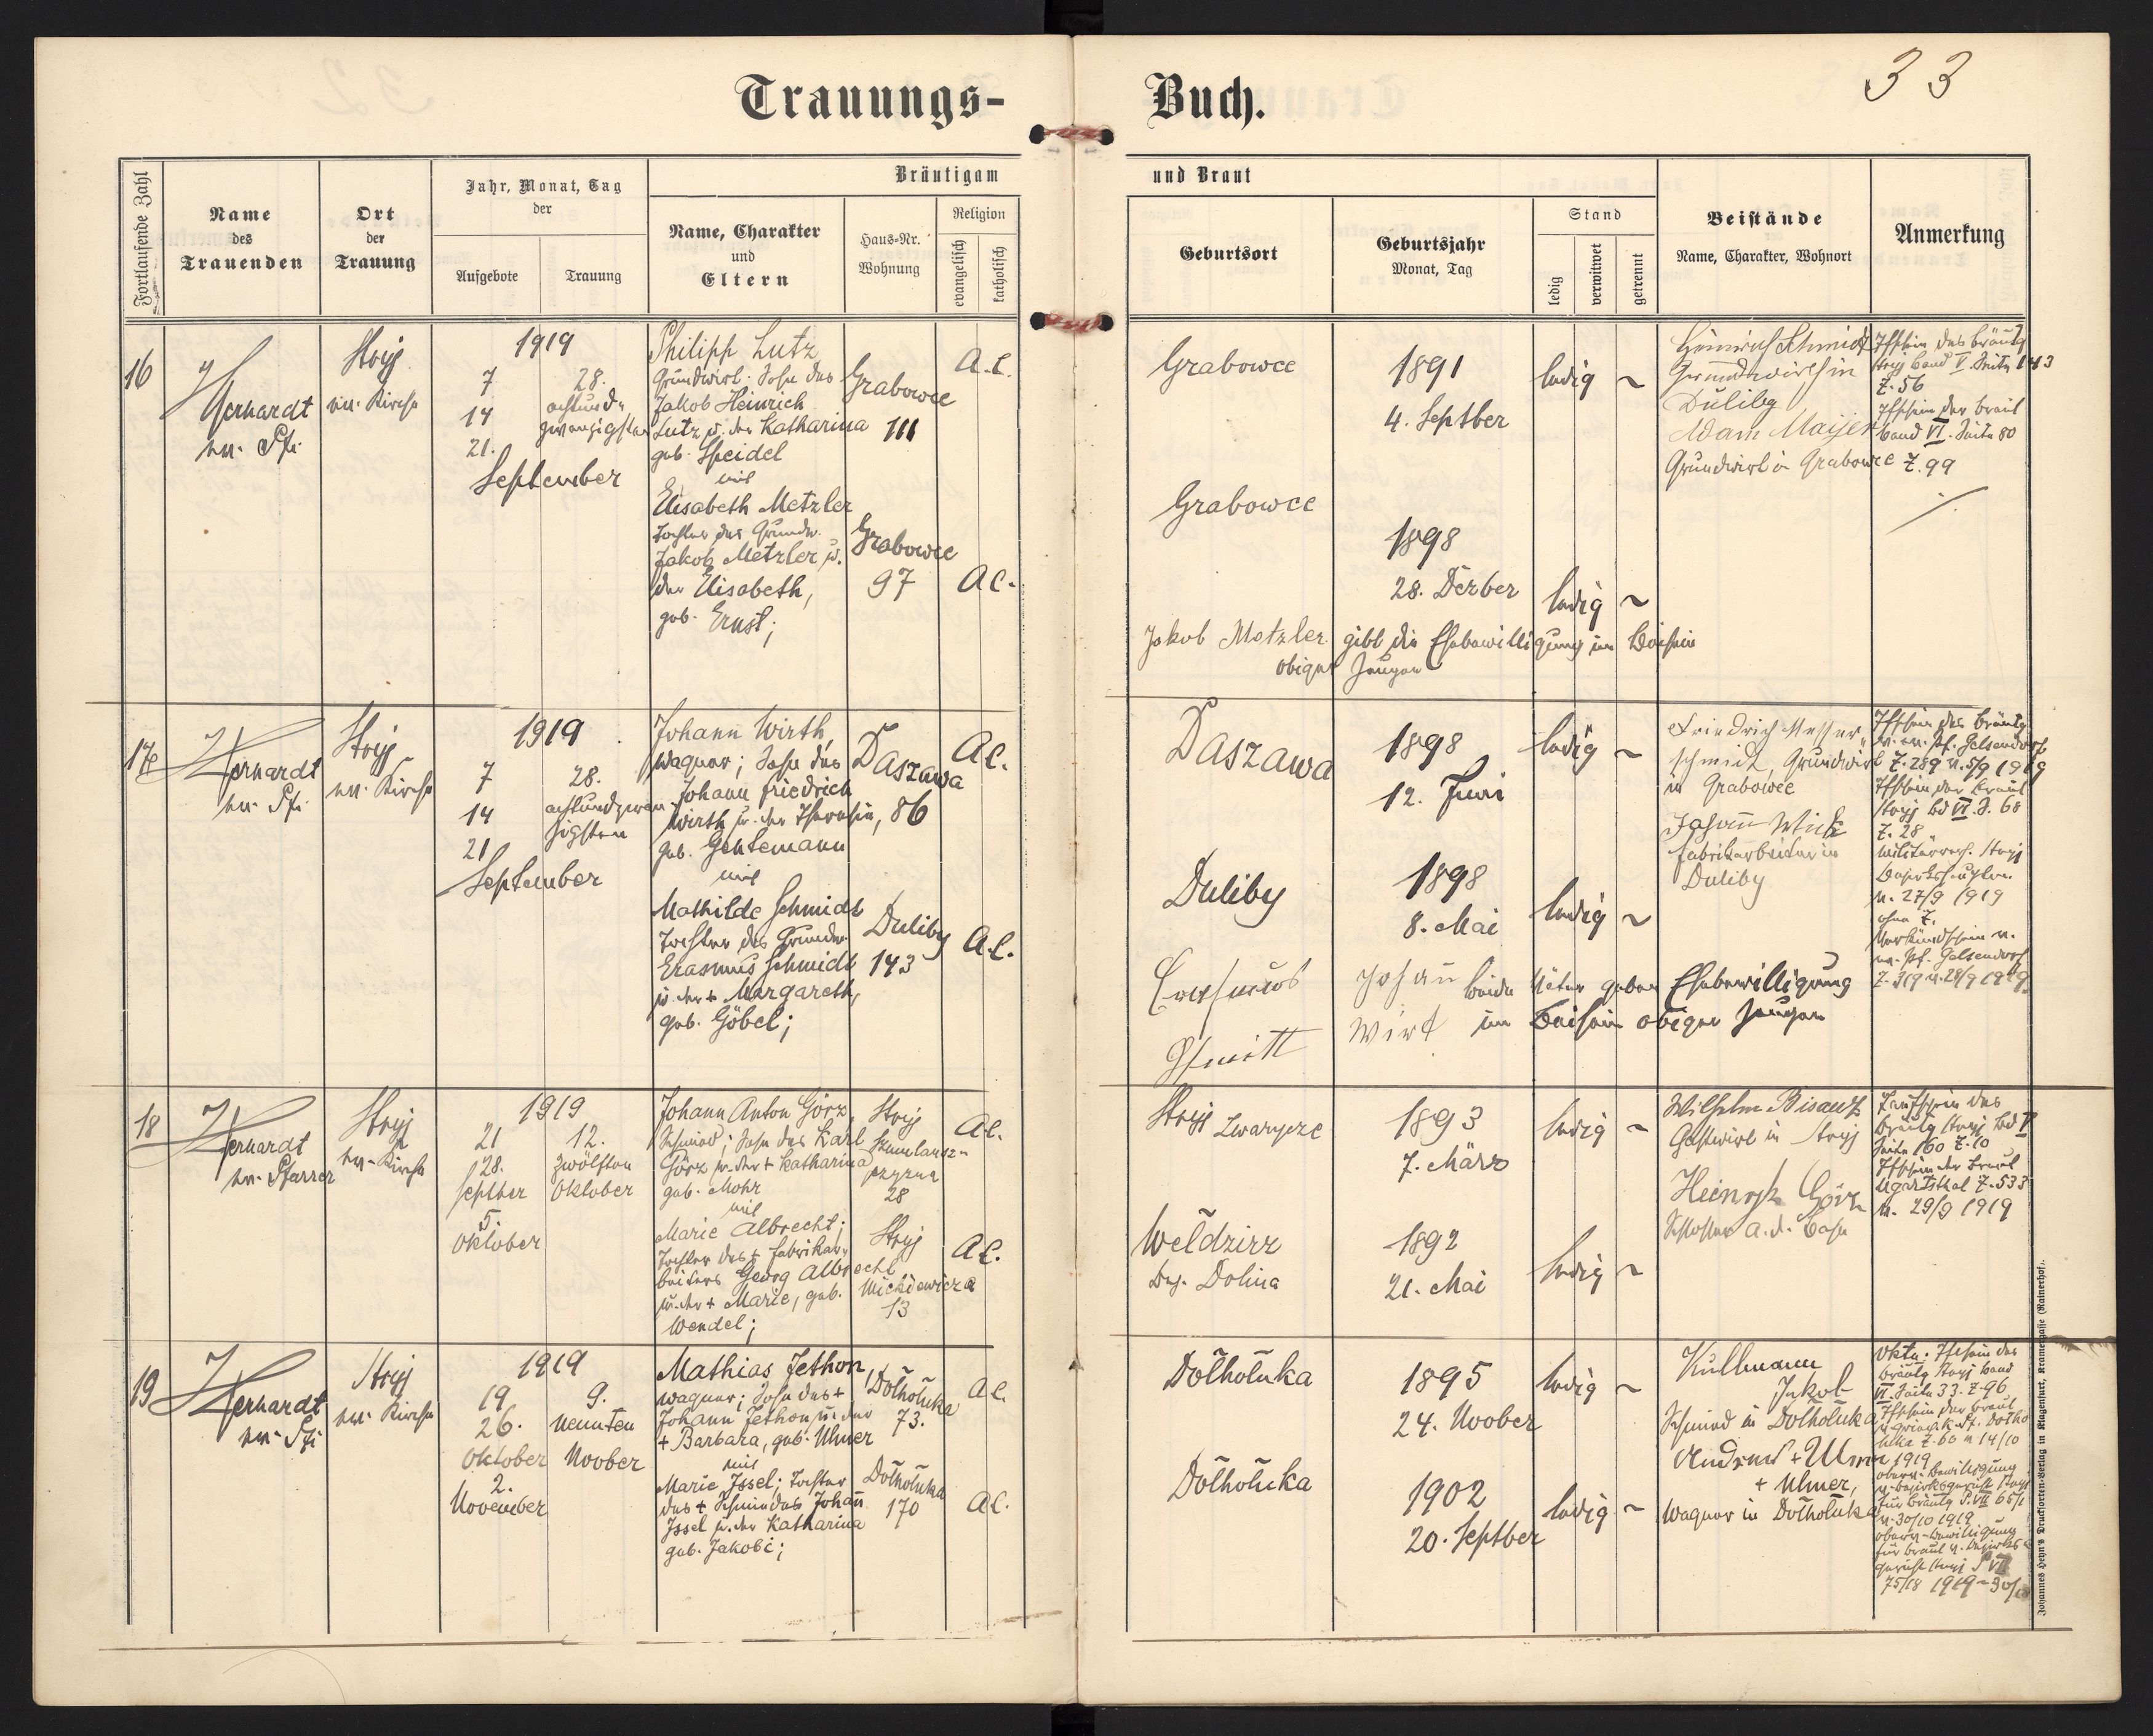 33
Trauungs-Buch.
Fortlaufende Zahl
Name
des
Trauenden
Ort
der
Trauung
Jahr, Monat, Tag
der
Aufgebote
Trauung
Bräutigam und Braut
Name, Charakter
und
Eltern
Haus-Nr.
Wohnung
Religion
evangelisch
katholisch
Geburtsort
Geburtsjahr
Monat, Tag
Stand
ledig
verwitwet
getrennt
Beistände
Name, Charakter, Wohnort
Anmerkung
16
Gerhardt
ev. Pfr.
Stryj
ev. Kirche
1919
7
14
21.
September
28.
achtund-
zwanzigsten
Philipp Lutz
Grundwirt. Sohn des
Jakob Heinrich
Lutz u. der Katharina
geb. Speidel
mit
Elisabeth Metzler
Tochter des Grundw.
Jakob Metzler u.
der Elisabeth,
geb. Ernst;
Grabowce
111
Grabowce
97
A.C.
A.C.
Grabowce
1891
4. Septber
ledig ~
Grabowce
1898
28. Dezber
ledig ~
Jakob Metzler gibt die Ehebewilligung im Beisein
obiger Zeugen
Heinrich Schmidt
Grundwirth in
Duliby
Adam Maijer
Grundwirt in Grabowce
Tfschein des Bräutg
Stryj Band V. Seite 143
Z. 56
Tfschein der Braut
Band VI. Seite 80
Z. 99
17
Gerhardt
ev. Pfr.
Stryj
ev. Kirche
1919
7
14
21
September
28.
achtundzwan-
zigsten
Johann Wirth,
Wagner; Sohn des
Johann Friedrich
Wirth u. der Theresia,
geb. Gentemann
mit
Mathilde Schmidt
Tochter des Grundw.
Erasmus Schmidt
u. der + Margareth,
geb. Göbel;
Daszawa
86
Duliby
143
A.C.
A.C.
Daszawa
1898
12. Juni
ledig ~
Duliby
1898
8. Mai
ledig ~
Erasmus
Schmitt
Johann
Wirt
beide Väter geben Ehebewilligung
im Beisein obiger Zeugen
Friedrich Messer-
schmidt, Grundwirt
in Grabowce
Johann
Fabrikarbeiter in
Duliby
Tfschein des Bräutg
v. ev. Pf. Gelsendorf
Z. 289 v. 5/9 1919
Tfschein der Braut
Stryj Bd VI. S. 68
Z. 28
v. 27/9 1919
ohne Z.
Verkündschein v.
ev. Pf. Gelsendorf
Z. 319 v. 28/9 1919.
18
Gerhardt
ev. Pfarrer
Stryj
ev. Kirche
1919
21
28.
Septber
5.
Oktober
12.
zwölften
Oktober
Johann Anton Görz,
Schmied; Sohn des Karl
Görz u. der + Katharina
geb. Mohr
mit
Marie Albrecht;
Tochter des + Fabrikar-
beiters Georg Albrecht
u. der + Marie, geb.
Wendel;
Stryj
28
Stryj
Mickiewicza
13
A.C.
A.C.
Stryj Zwarycze
1893
7. März
ledig ~
Weldzirz
Bez. Dolina
1892
21. Mai
ledig ~
Wilhelm Bisanz
Gastwirt in Stryj
Heinrich Görz
Schlosser a. d. Bahn
Taufschein des
Bräutg Stryj Bd V
Seite 160 Z. 10
Tfschein der Braut
Ugartsthal Z. 533
v. 29/9 1919
19
Gerhardt
ev. Pfr.
Stryj
ev. Kirche
1919
19
26.
Oktober
2.
November
9.
neunten
Novber
Mathias Jethon
Wagner; Sohn des +
Johann Jethon u. der
+ Barbara, geb. Ulmer
mit
Marie Issel; Tochter
des + Schmiedes Johann
Issel u. der Katharina
geb. Jakobi;
Dołhołuka
73.
Dołhołuka
170
A.C.
A.C.
Dołhołuka
1895
24. Novber
ledig ~
Dołhołuka
1902
20. Septber
ledig ~
Kullmann
Jakob
Schmied in Dołhołuka
Andreas + Ulmer
+ Ulmer,
Wagner in Dołhołuka
Tfschein des
Bräutg Stryj Band
VI. Seite 33. Z. 96
Tfschein der Braut
Z. 60 v 14/10
1919
v. 30/10 1919
75/18 1919
Johannes Heyn's Drucksorten-Verlag in Klagenfurt, Kramergasse (Rainerhof).